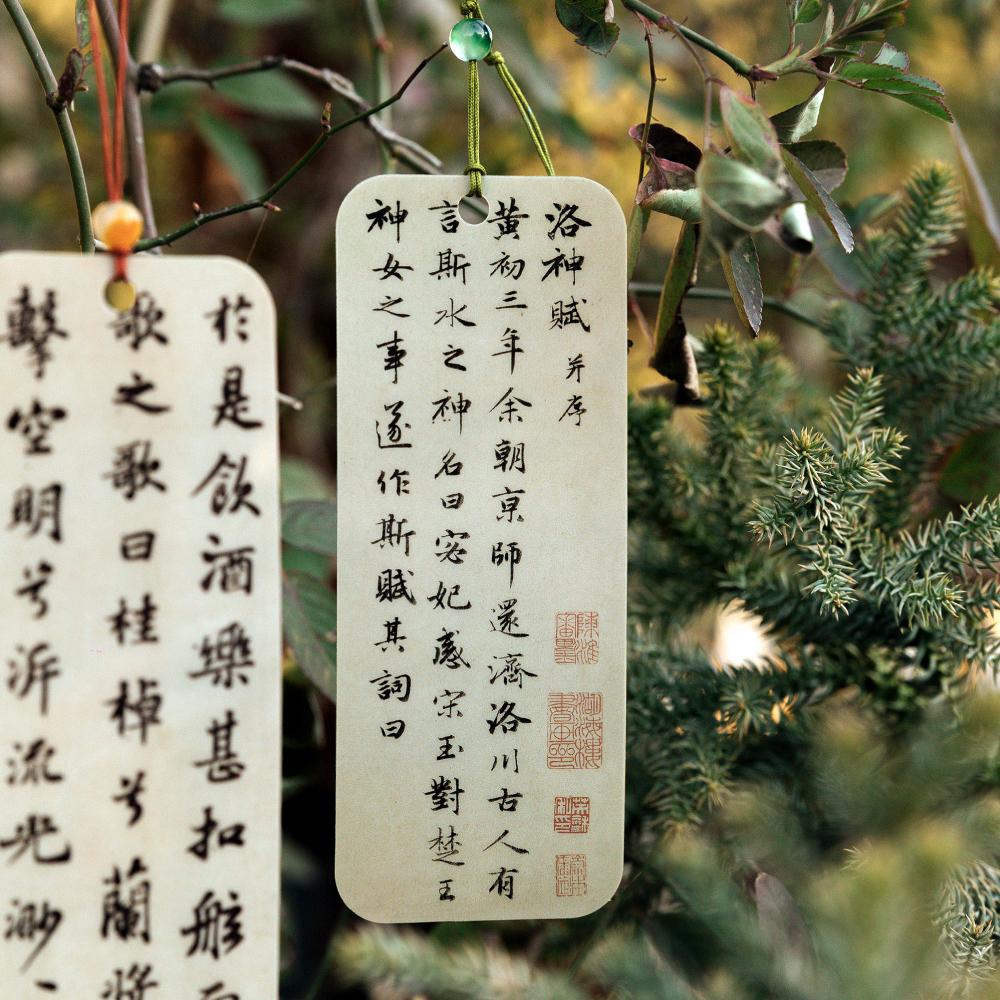 洛神賦 并序
黃初三年余朝京師還濟洛川古人有
言斯水之神名曰宓妃感宋玉對楚王
神女之事遂作斯賦其詞曰
於是飲酒樂甚扣舷而
歌之歌曰桂棹兮蘭槳
擊空明兮泝流光渺